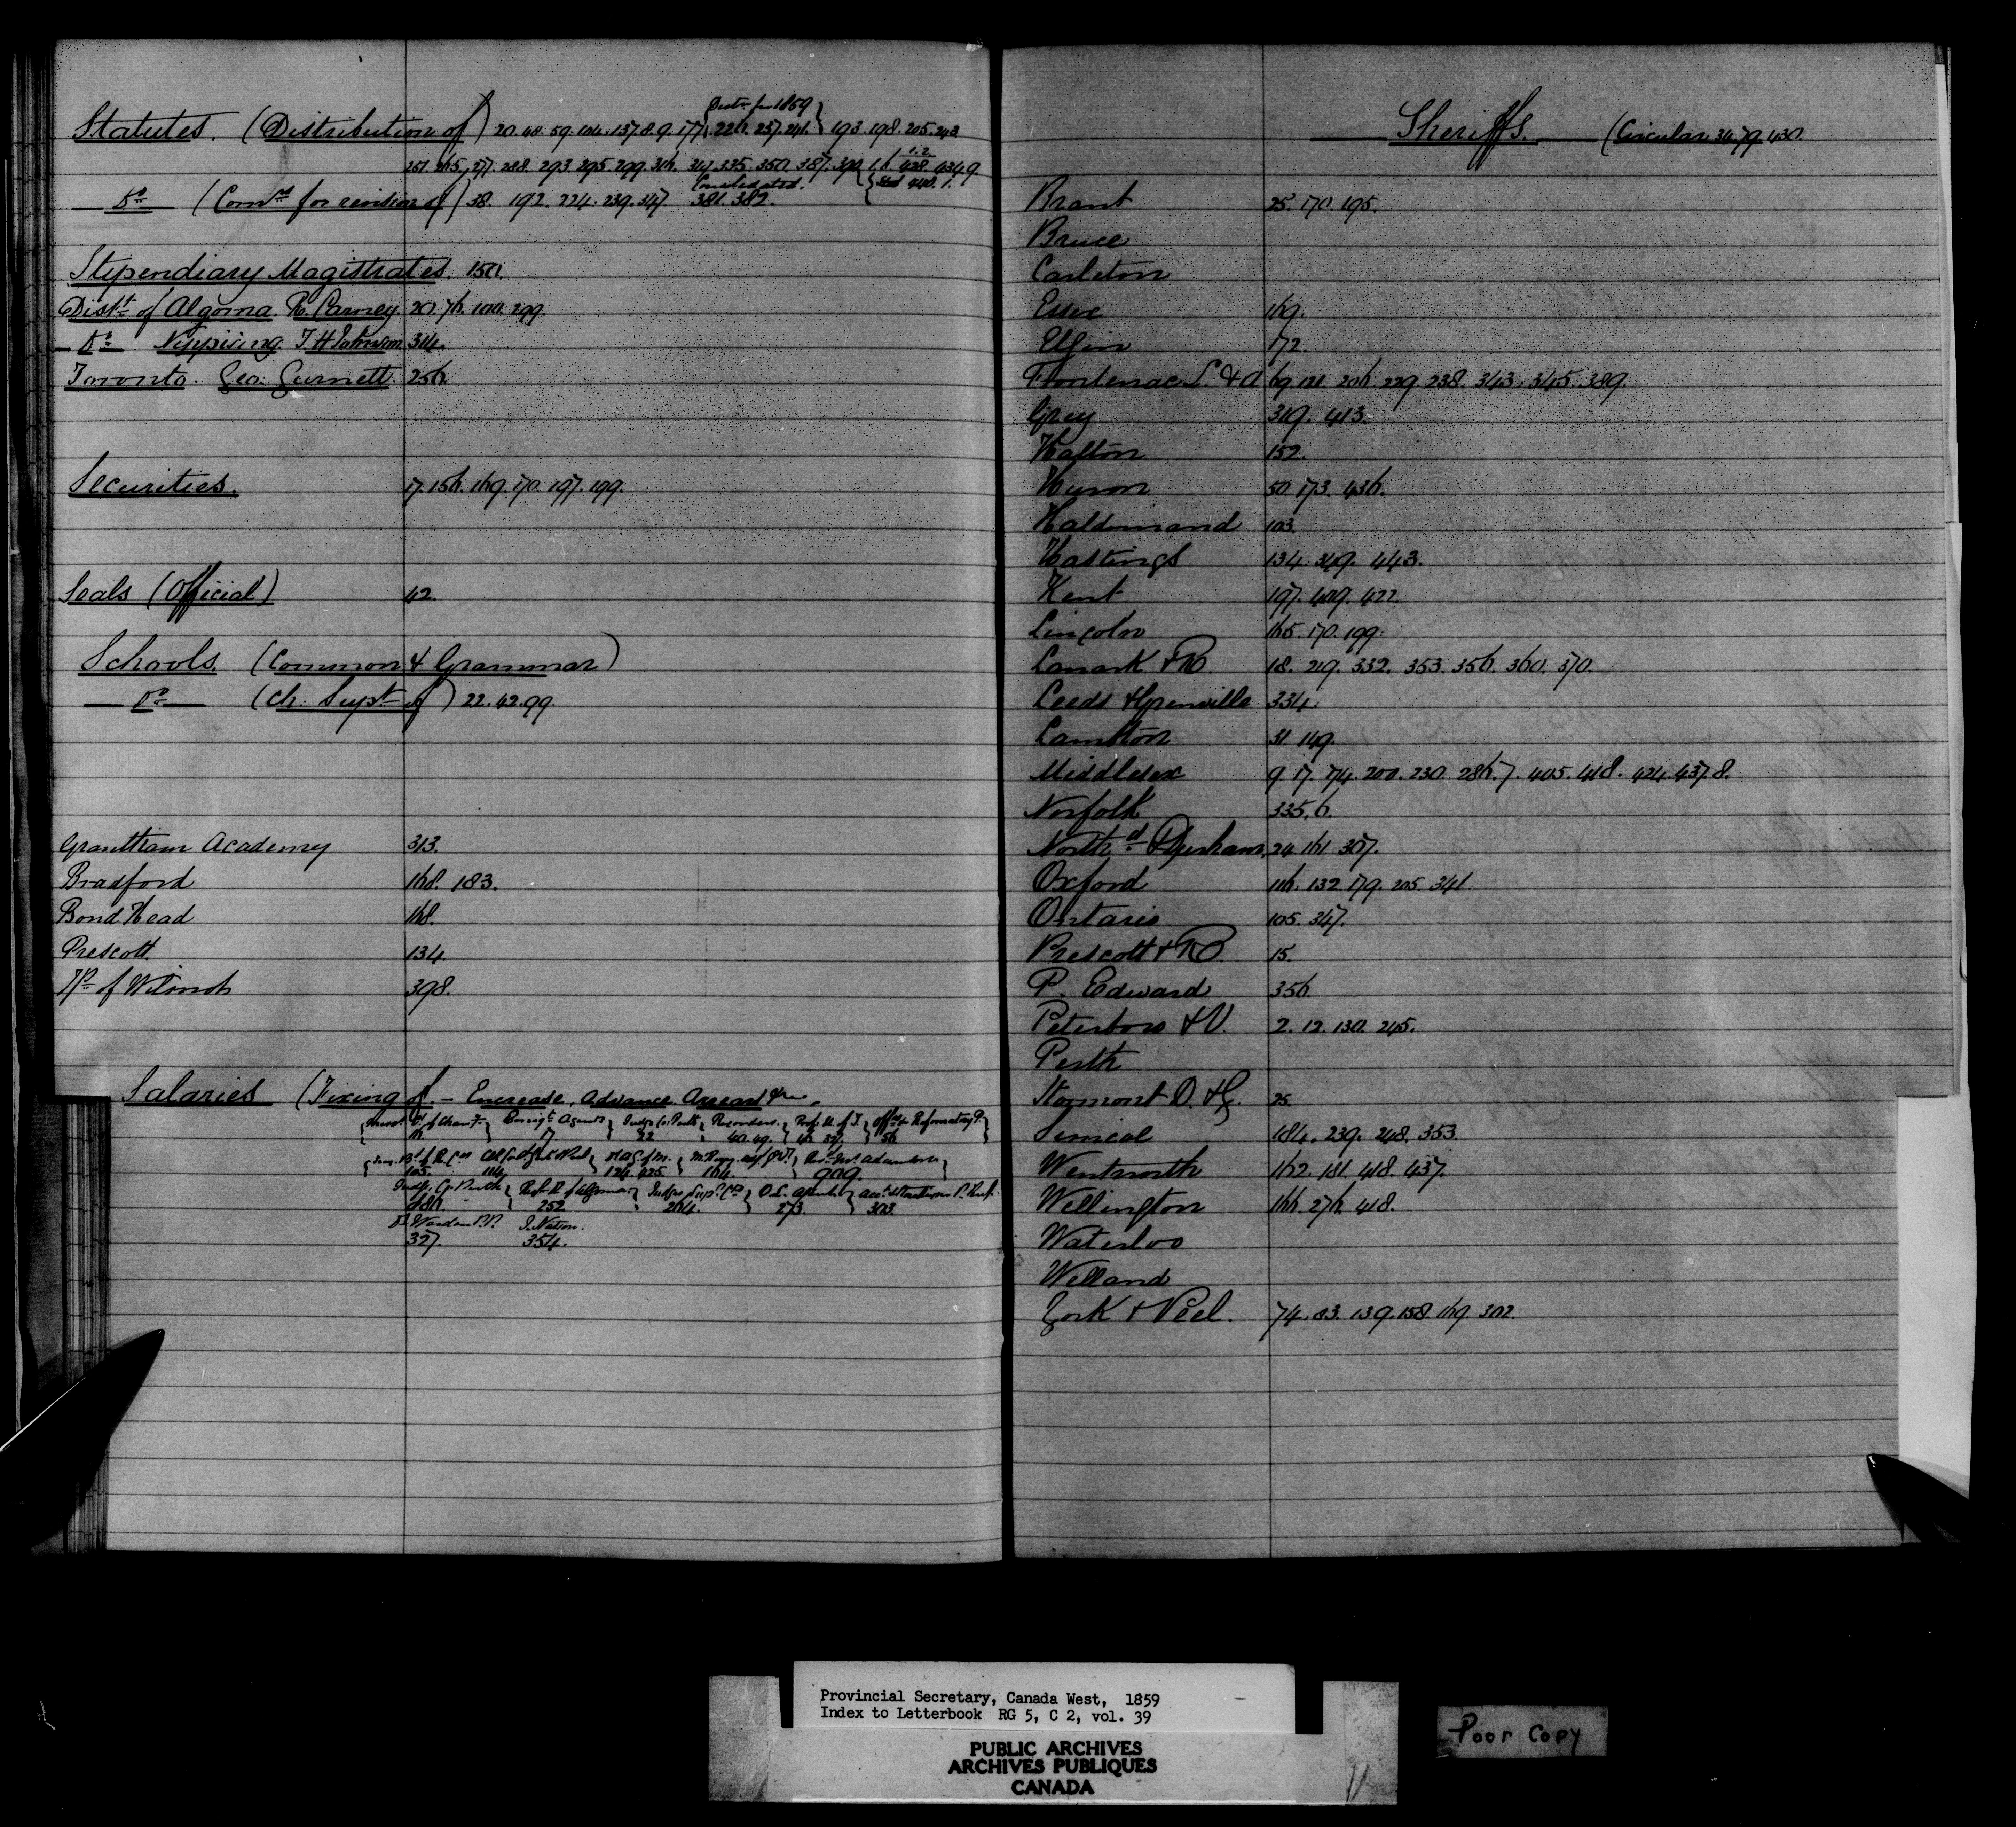 Statutes. (Distribution of) 20. 48. 59. 104. 137. 8. 9. 177 { Distn for 1859 226. 237. 241. } 193. 198. 205. 243.
251. 265. 277. 288. 293. 295. 299. 316. 335. 350. 387. 390. 428. 434. 9.
Do (Comrs for revision of) 38. 192. 224. 239. 347. Consolidated. 381. 382. 440. 1.
Stipendiary Magistrates. 150.
Distt of Algoma. R. Carney. 20. 76. 100. 299.
Do Nippising. T H Johnson 314.
Toronto. Geo: Gurnett. 256.
Securities. 17. 156. 169. 170. 197. 199.
Seals (Official) 42.
Schools. (Common & Grammar)
Do (Ch: Supt of) 22. 42. 99.
Grantham Academy 313.
Bradford 168. 183.
Bond Head 168.
Prescott. 134.
Tp of Wilmot 398.
Salaries (Fixing of. – Encrease, Advance, Arrears &c.
Emigt Agents Judge Co. Perth Recorders. Prof: U. of T. Offrs Reformatory P.
17 22 40. 49. 56
105. 114. 124. 425. 164. 909.
Judge Co. Perth Judges Sup. Ct
186. 252. 264. 273. 303.
Do Warden P.P. J. Nation.
327. 354.
Sheriffs. (Circular 34. 79. 430.
Brant 25. 170. 195.
Bruce
Carleton
Essex 169.
Elgin 172.
Frontenac L. & A 69. 121. 206. 229. 238. 343. 345. 389.
Grey 319. 413.
Halton 152.
Huron 50. 173. 436.
Haldimand 103.
Hastings 134. 349. 443.
Kent 197. 409. 422
Lincoln 165. 170. 199.
Lanark & R. 18. 219. 332. 353. 356. 360. 370.
Leeds & Grenville 334.
Lambton 31. 149.
Middlesex 9. 17. 74. 200. 230. 286. 7. 405. 418. 424. 437. 8.
Norfolk 335. 6.
Northd & Durham 24. 161. 307.
Oxford 116. 132. 179. 205. 341.
Ontario 105. 347.
Prescott & R. 15.
P. Edward 356.
Peterboro & V. 2. 12. 130. 245.
Perth
Stormont D. & G. 25.
Simcoe 184. 239. 248. 353.
Wentworth 162. 181. 418. 437.
Wellington 166. 276. 418.
Waterloo
Welland
York & Peel. 74. 83. 139. 158. 169. 302.
Provincial Secretary, Canada West, 1859
Index to Letterbook RG 5, C 2, vol. 39
PUBLIC ARCHIVES
ARCHIVES PUBLIQUES
CANADA
Poor Copy